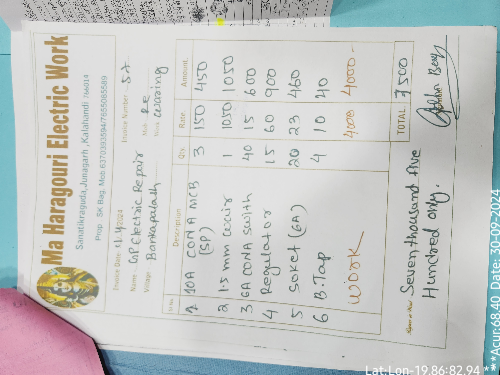 Ma Haragouri Electric Work
Sanatikraguda, Junagarh, Kalahandi 766014
Prop. SK Bag, Mob.6370393594/7655085589
Invoice Date
2024
Invoice Number 57
Name GP Electric Repair
Mob. Re
Village
Work waring
Sl.No. Description Qty. Rate Amount
1 10A CONA MCB (SP) 3 150 450
2 1.5 mm 1 1050 1050
3 6A CONA swith 40 15 600
4 Regulator 15 60 900
5 Soket (6A) 20 23 460
6 B. Tap 4 10 40
Work 4000 4000
TOTAL 7500
Seven thousand five
Hundred only.
Lat:Lon-19.86:82.94
***Acur:68.40 Date: 30-09-2024